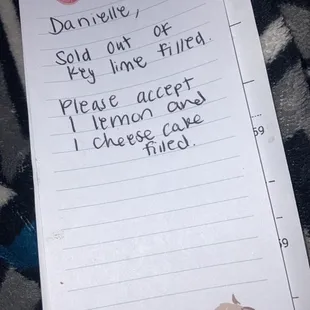 Danielle,
Sold out of
Key lime filled.
Please accept
1 lemon and
1 cheese cake
filled.
59
$9